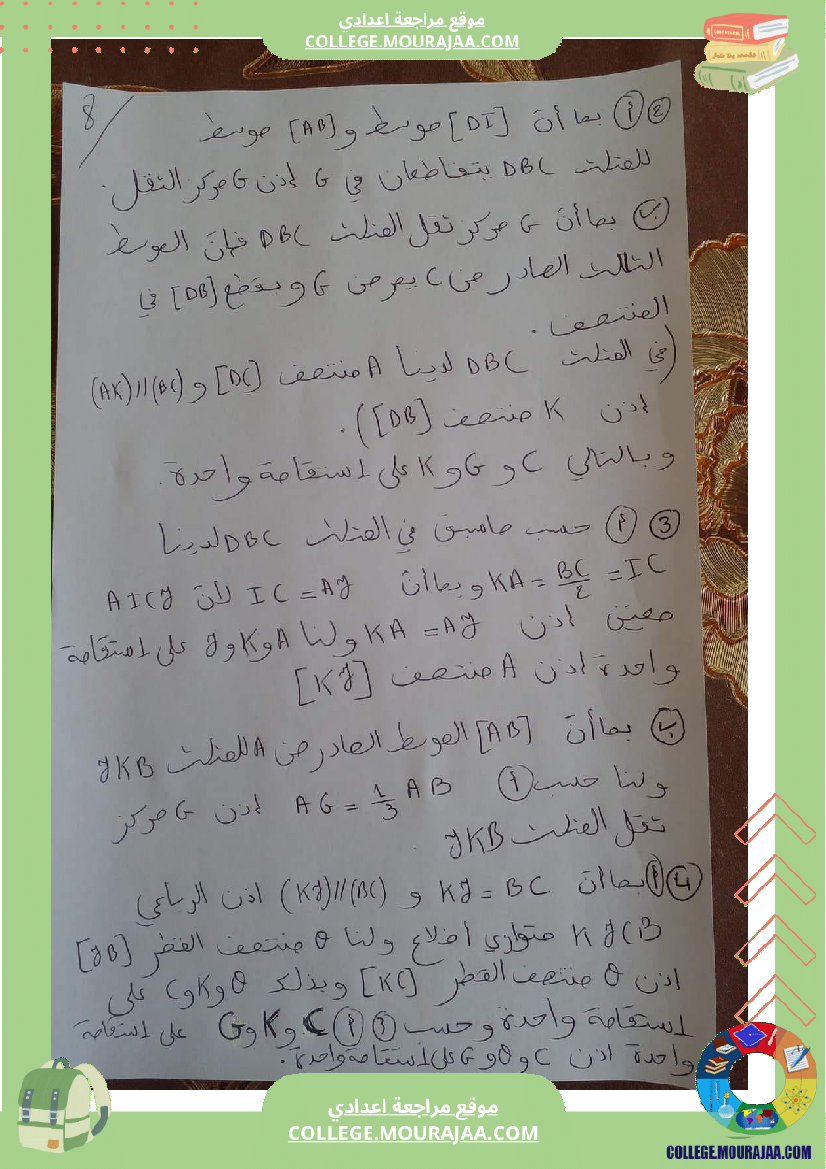 موقع مراجعة اعدادي
COLLEGE.MOURAJAA.COM
8
② أ بما أن [DI] موسط و [AB] موسط
للمثلث DBC يتقاطعان في G إذن G مركز الثقل.
ب بما أن G مركز ثقل المثلث DBC فإن الموسط
الثالث الصادر من C يمر من G ويقطع [DB] في
المنتصف.
(في المثلث DBC لدينا A منتصف [DC] و (AK)//(BC)
إذن K منتصف [DB]).
وبالتالي C و G و K على استقامة واحدة.
③ أ حسب ماسبق في المثلث DBC لدينا
KA = BC/2 = IC وبما أن IC = AJ لأن AICJ
معين إذن KA = AJ ولنا A و K و J على استقامة
واحدة إذن A منتصف [KJ]
ب بما أن [AB] الموسط الصادر من A للمثلث JKB
ولنا حسب ① AG = 1/3 AB إذن G مركز
ثقل المثلث JKB.
④ أ بما أن KJ = BC و (KJ)//(BC) إذن الرباعي
KJCB متوازي أضلاع ولنا θ منتصف القطر [JB]
إذن θ منتصف القطر [KC] وبذلك θ و K و C على
استقامة واحدة وحسب ② أ C و K و G على استقامة
واحدة إذن C و θ و G على استقامة واحدة.
موقع مراجعة اعدادي
COLLEGE.MOURAJAA.COM
COLLEGE.MOURAJAA.COM